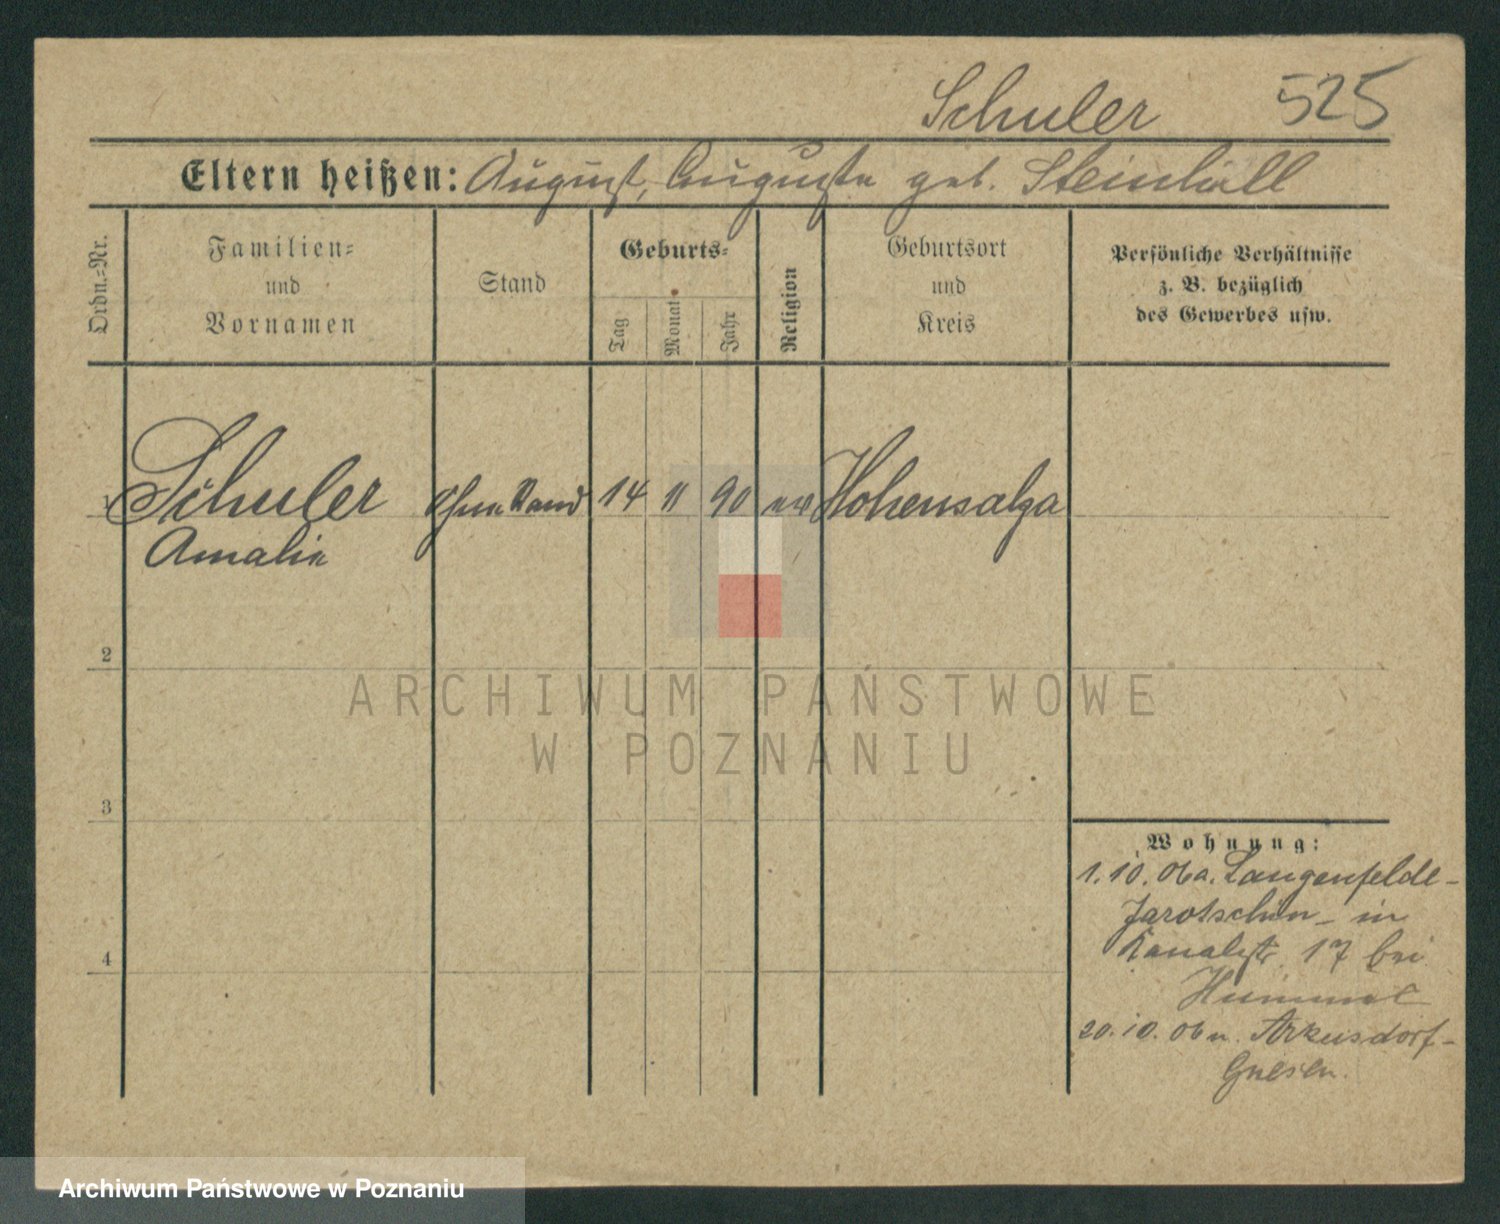 Schuler 525
Eltern heißen: August, Auguste geb. Steinhall
Ordn.-Nr.
Familien-
und
Vornamen
Stand
Geburts-
Tag
Monat
Jahr
Religion
Geburtsort
und
Kreis
Persönliche Verhältnisse
z. B. bezüglich
des Gewerbes usw.
1 Schuler ohne Stand 14 11 90 ev Hohensalza
Amalie
2
3
4
Wohnung:
1.10.06 a. Langenfelde-
Jarotschin - in
Kanalstr 17 bei
Hummel
20.10.06 n. Arkusdorf-
Gnesen.
ARCHIWUM PAŃSTWOWE
W POZNANIU
Archiwum Państwowe w Poznaniu